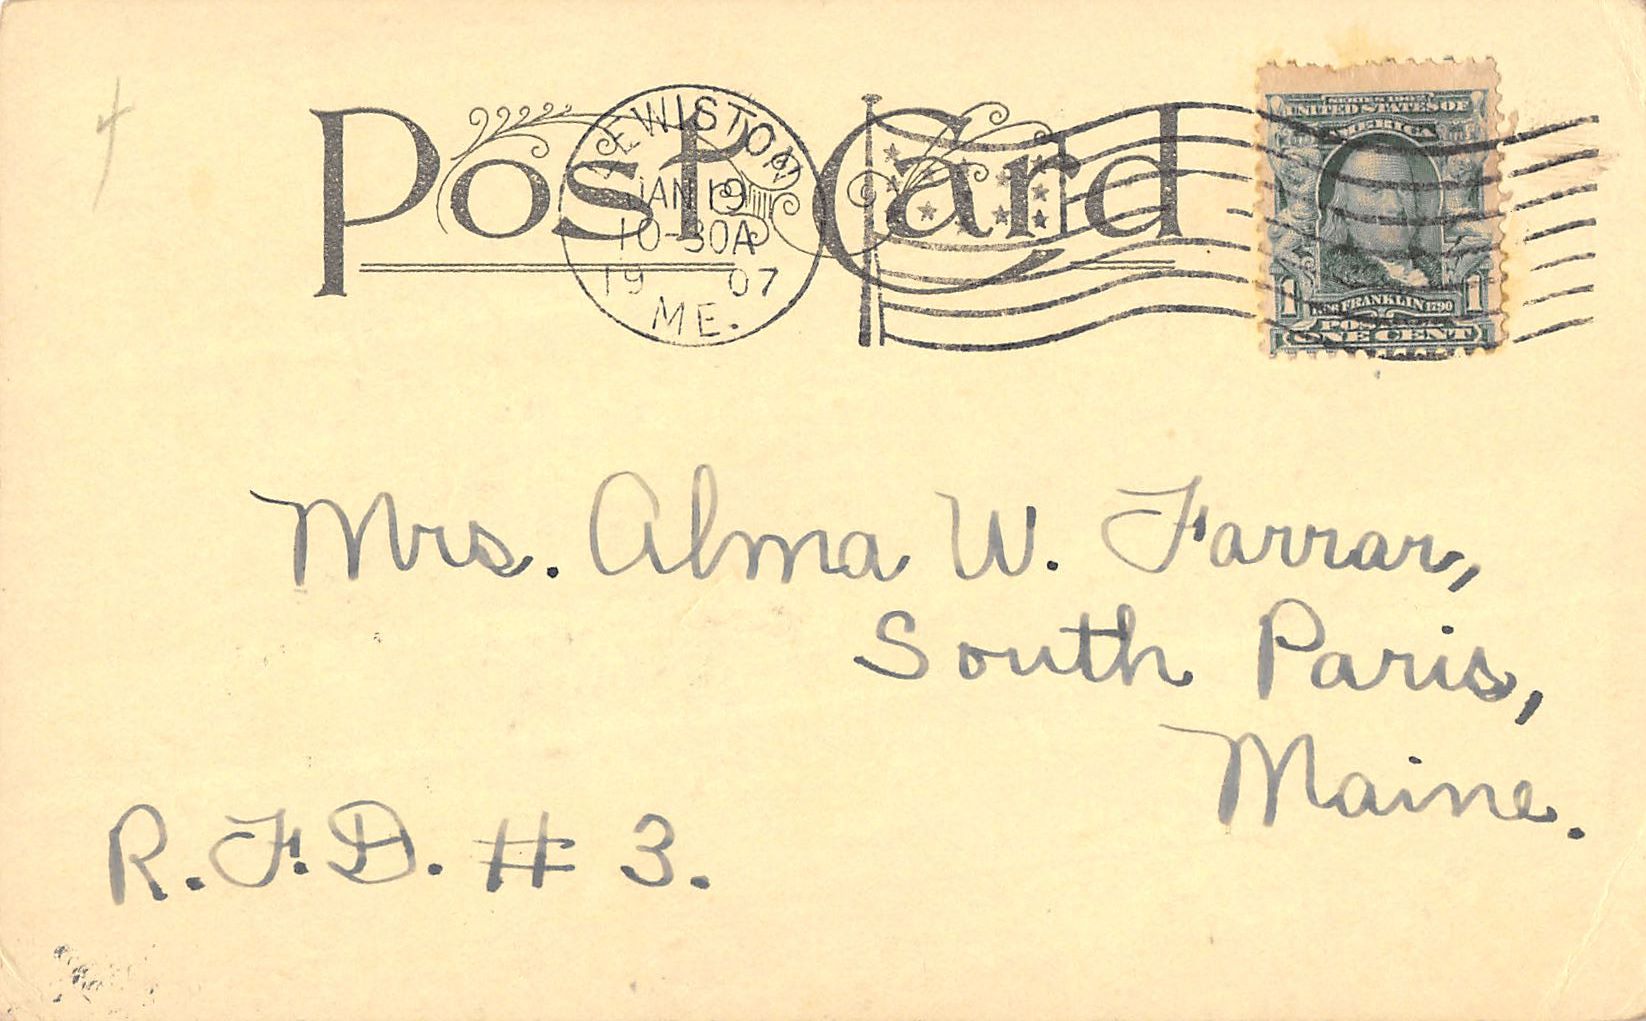 Post Card
LEWISTON
JAN 19
10-30A
19 07
ME.
SERIES 1902
UNITED STATES OF
AMERICA
1 FRANKLIN 1790 1
POSTAGE
ONE CENT
Mrs. Alma W. Farrar,
South Paris,
Maine.
R.F.D. # 3.
4